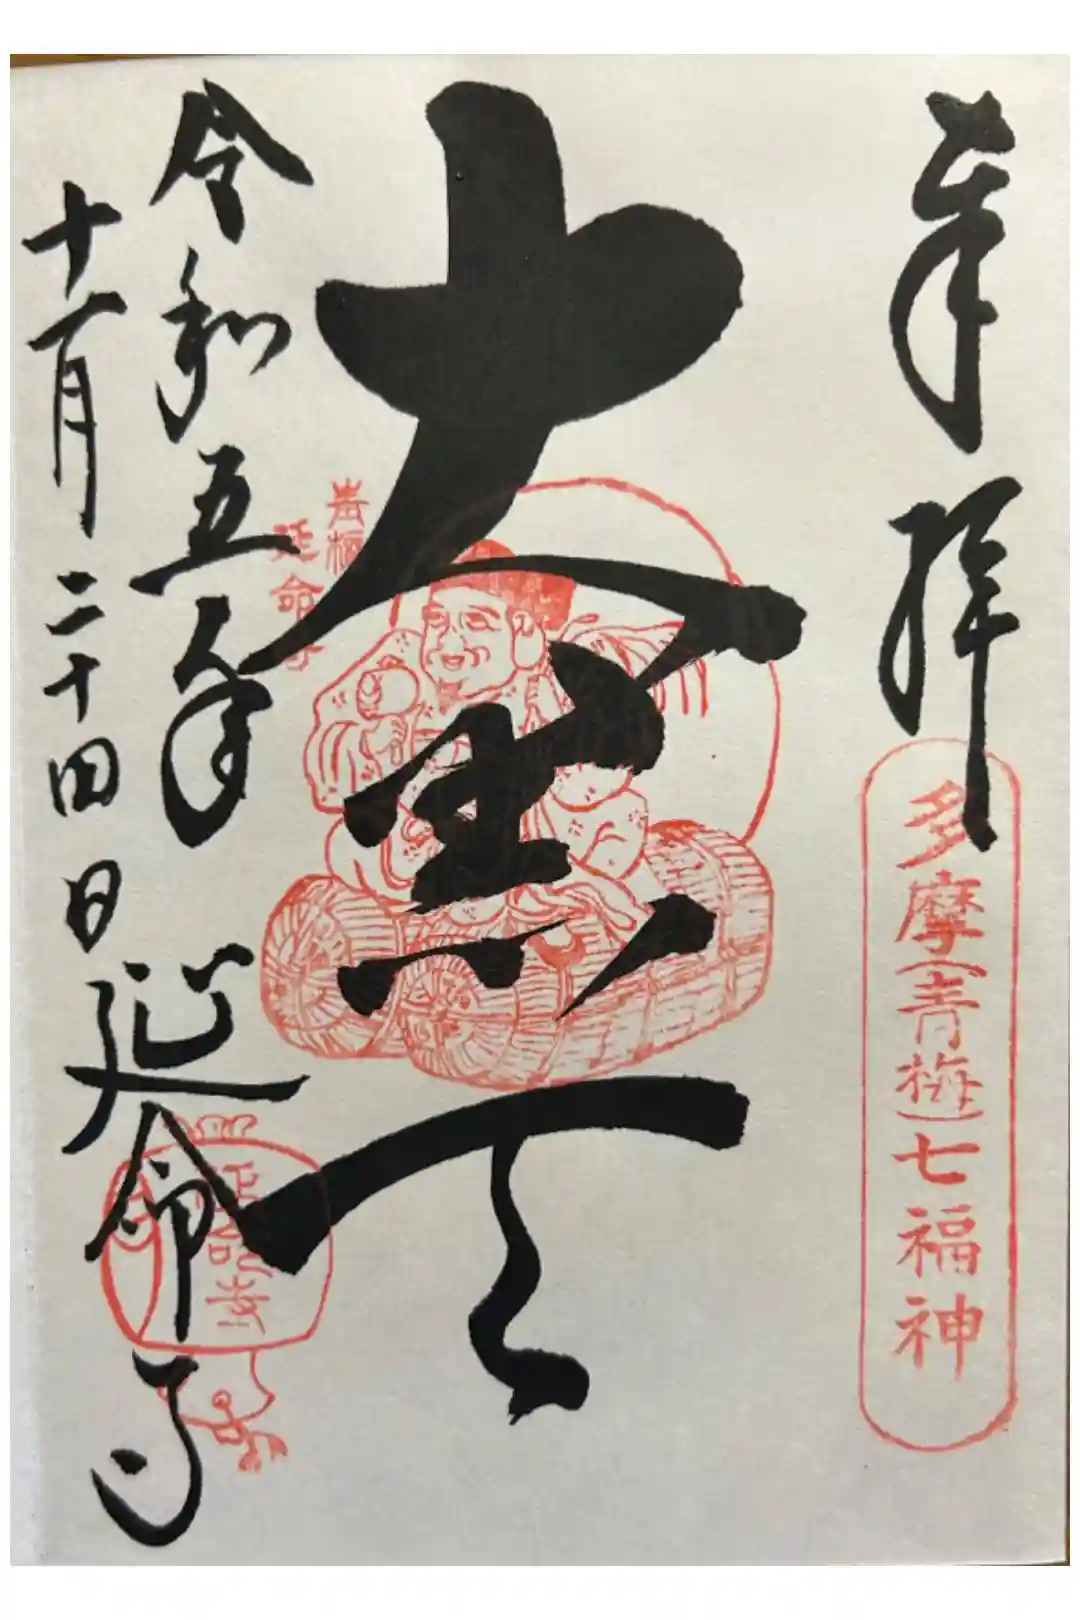 奉拝
多摩(青梅)七福神
大黒天
青梅
延命寺
令和五年
十一月二十四日
延命寺